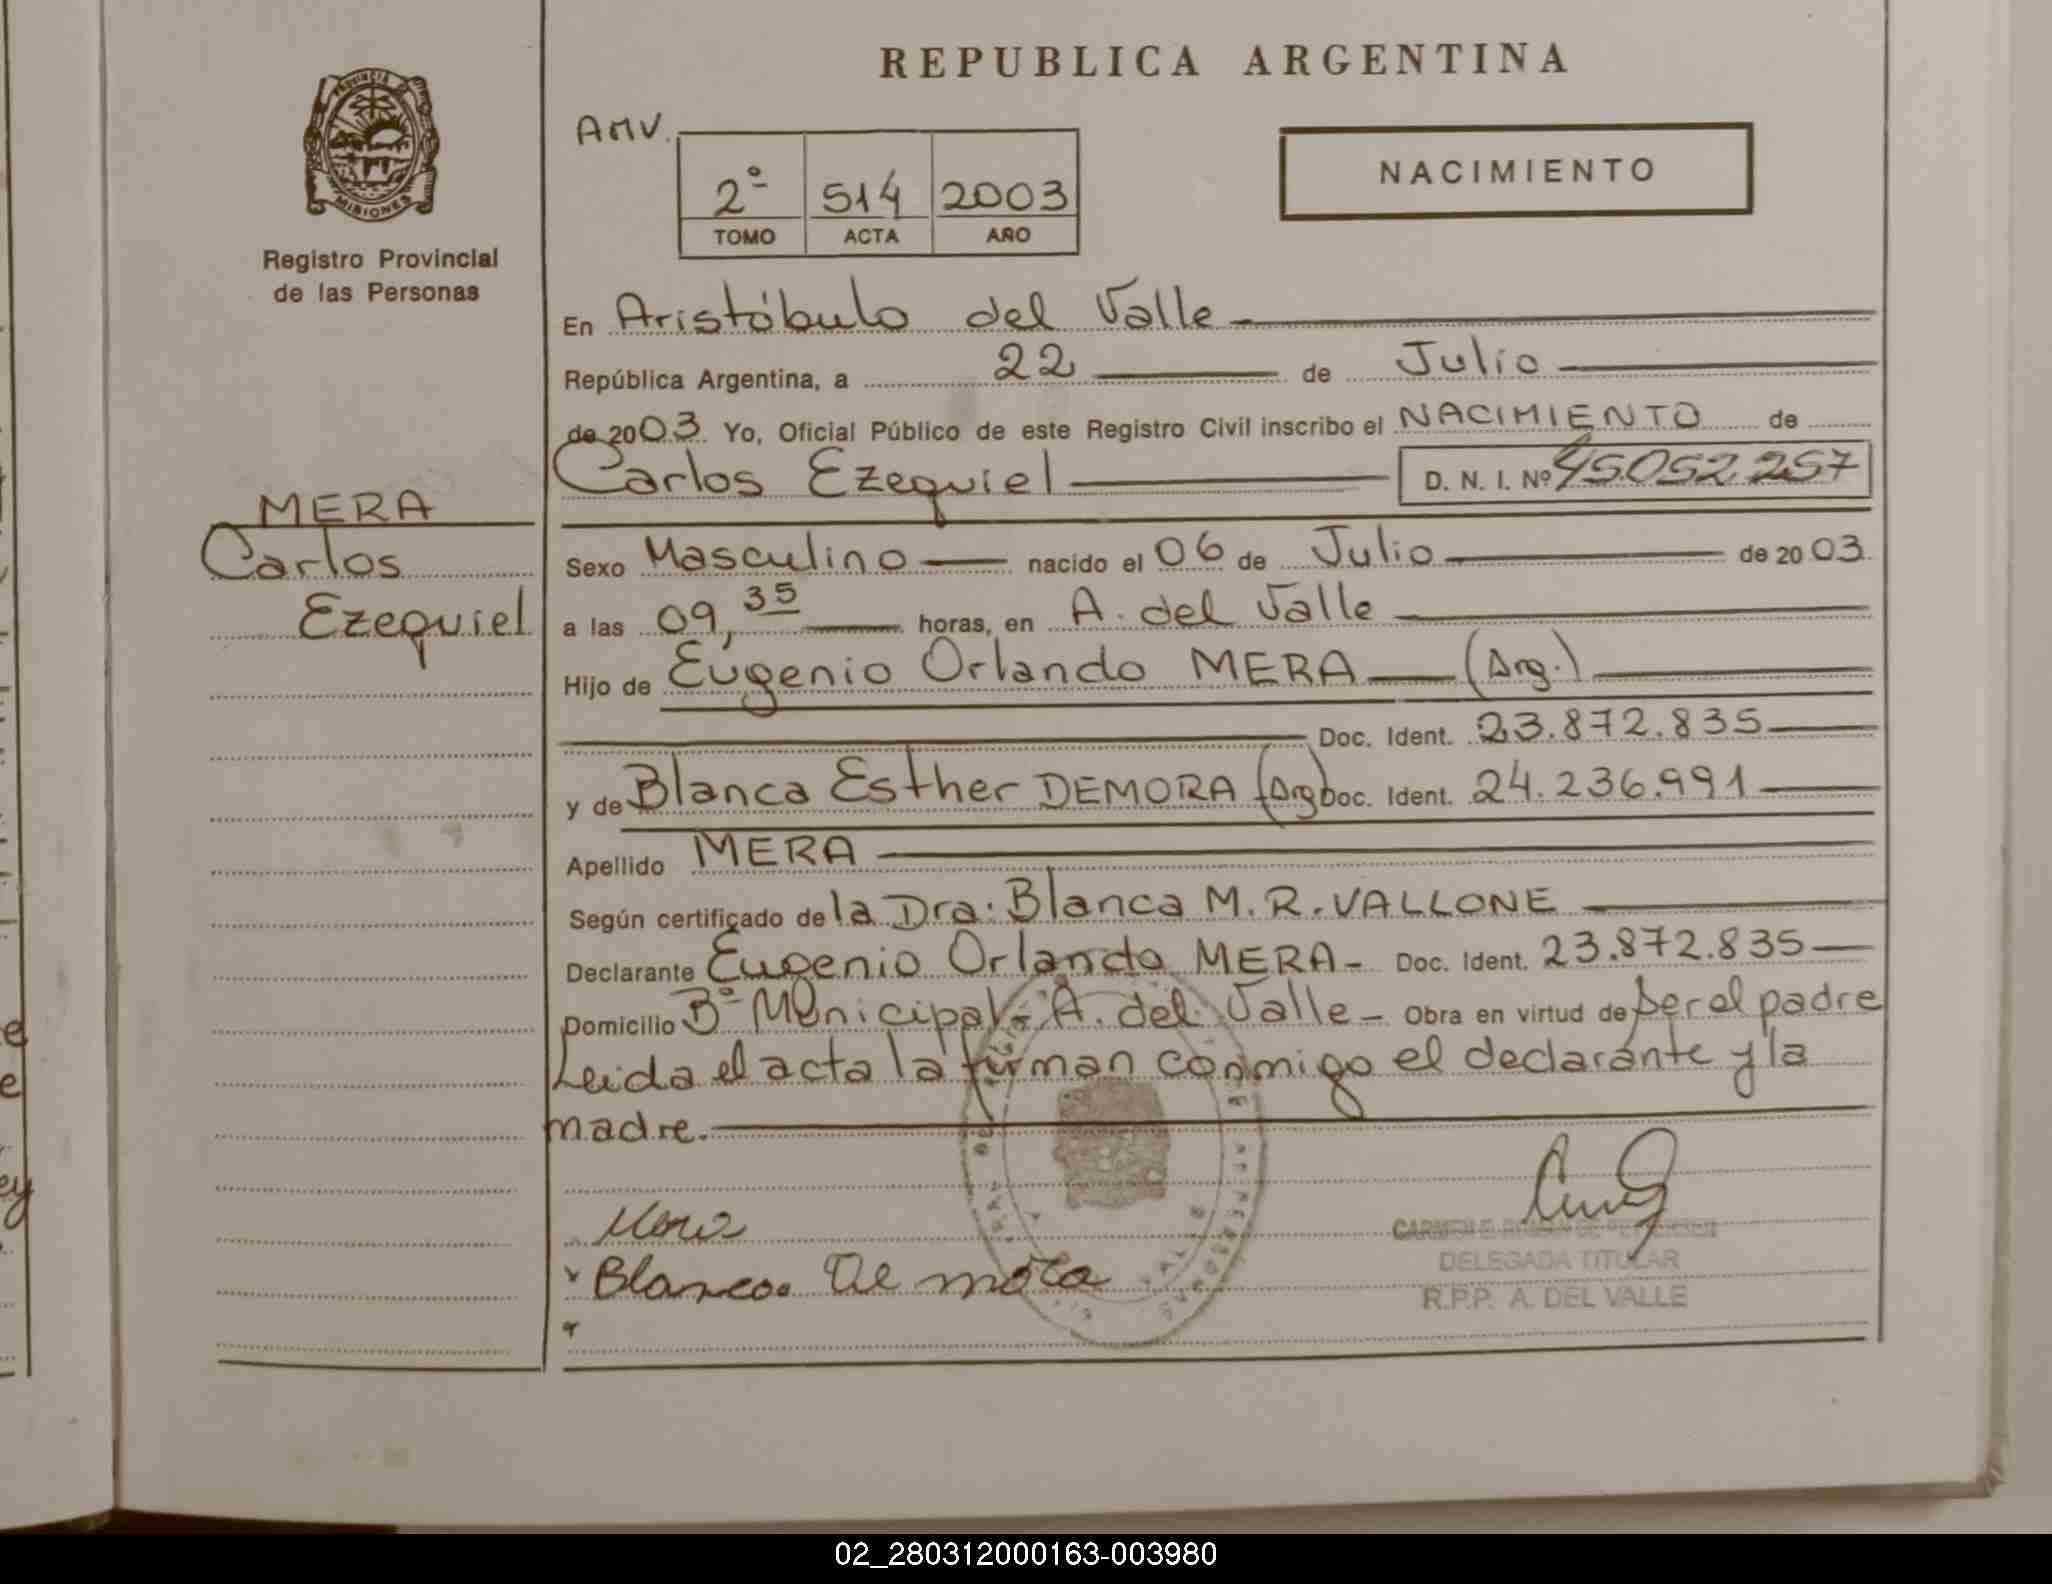 REPUBLICA ARGENTINA
PROVINCIA DE
MISIONES
Registro Provincial
de las Personas
AMV.
2º 514 2003
TOMO ACTA AÑO
NACIMIENTO
En Aristóbulo del Valle
República Argentina, a 22 de Julio
de 2003. Yo, Oficial Público de este Registro Civil inscribo el NACIMIENTO de
Carlos Ezequiel D. N. I. Nº 45.052.257
MERA
Carlos
Ezequiel
Sexo Masculino nacido el 06 de Julio de 2003.
a las 09,35 horas, en A. del Valle
Hijo de Eugenio Orlando MERA (Arg.)
Doc. Ident. 23.872.835
y de Blanca Esther DEMORA (Arg) Doc. Ident. 24.236.991
Apellido MERA
Según certificado de la Dra. Blanca M. R. VALLONE
Declarante Eugenio Orlando MERA - Doc. Ident. 23.872.835
Domicilio Bº Municipal - A. del Valle - Obra en virtud de ser el padre
Leida el acta la firman conmigo el declarante y la
madre.
Mera
Blanca De mora
DELEGADA TITULAR
R.P.P. A. DEL VALLE
02_280312000163-003980